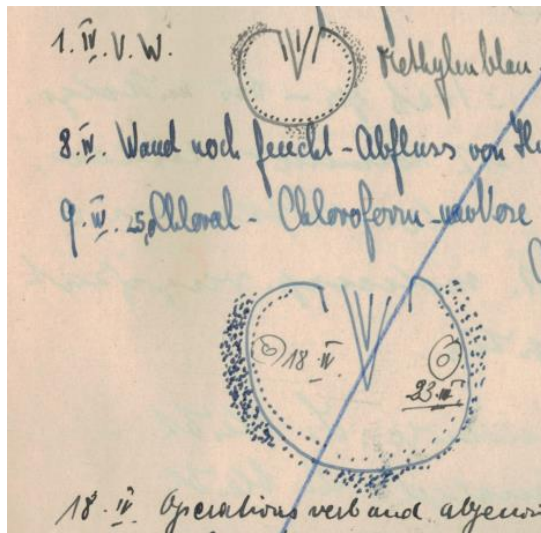 1. IV. V. W.
Methylenblau
8. IV. Wand noch feucht - Abfluss von
9. IV. 25, Chloral - Chloroform-narkose
18. IV.
23. IV.
18. IV. Operationsverband abgenom